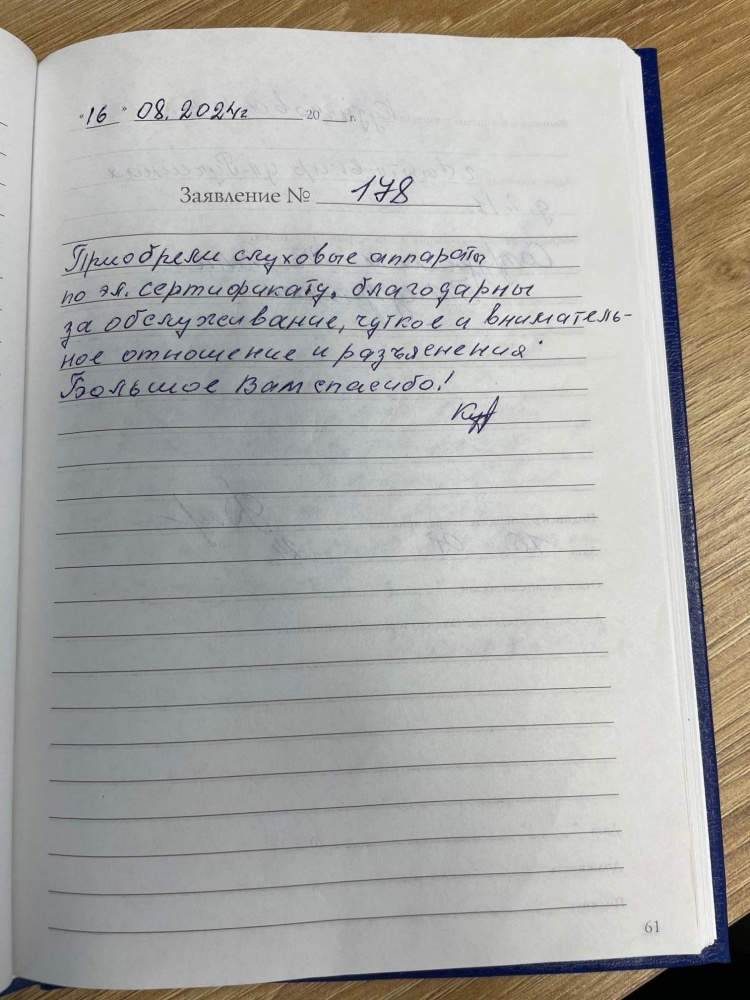 "16" 08. 2024г 20 г.
Заявление № 178
Приобрели слуховые аппараты
по эл. сертификату. благодарны
за обслуживание, чуткое и вниматель-
ное отношение и разъяснения.
Большое Вам спасибо!
61